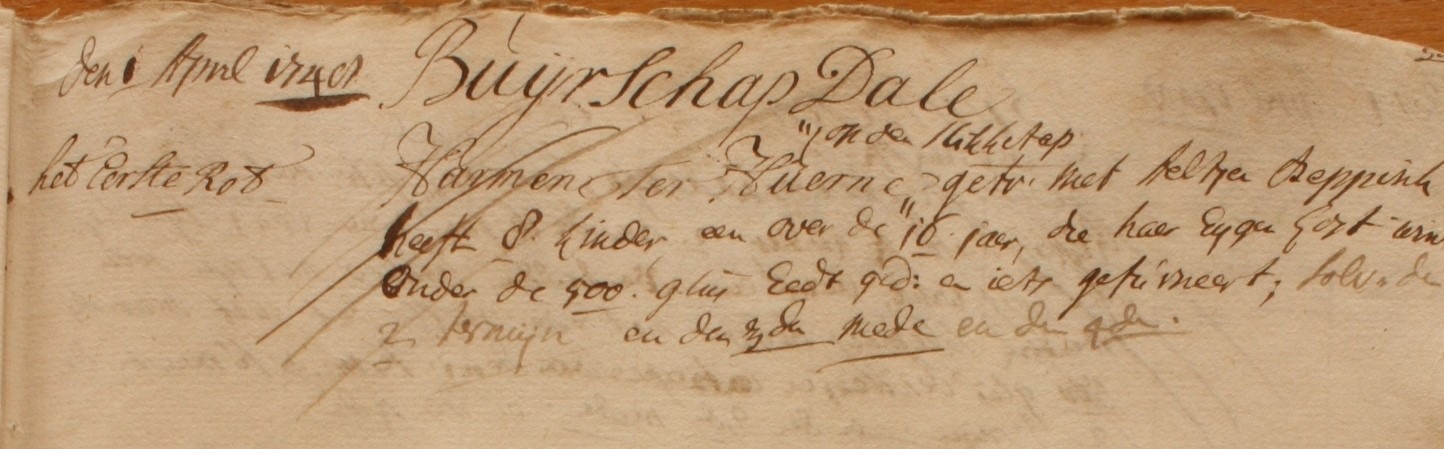 den 1 April 1748 Buÿrschap Dale
op den
het Eerste Rot Harmen ter Huerne getr. met Aeltjen Reppink
heeft 8. kinder een over de 16. jaar, die haer Eygen Cost win
Onder de 500. glns Eedt ged: en iets gefurneert, solv. de
2 termijn en den 3den mede en den 4den.